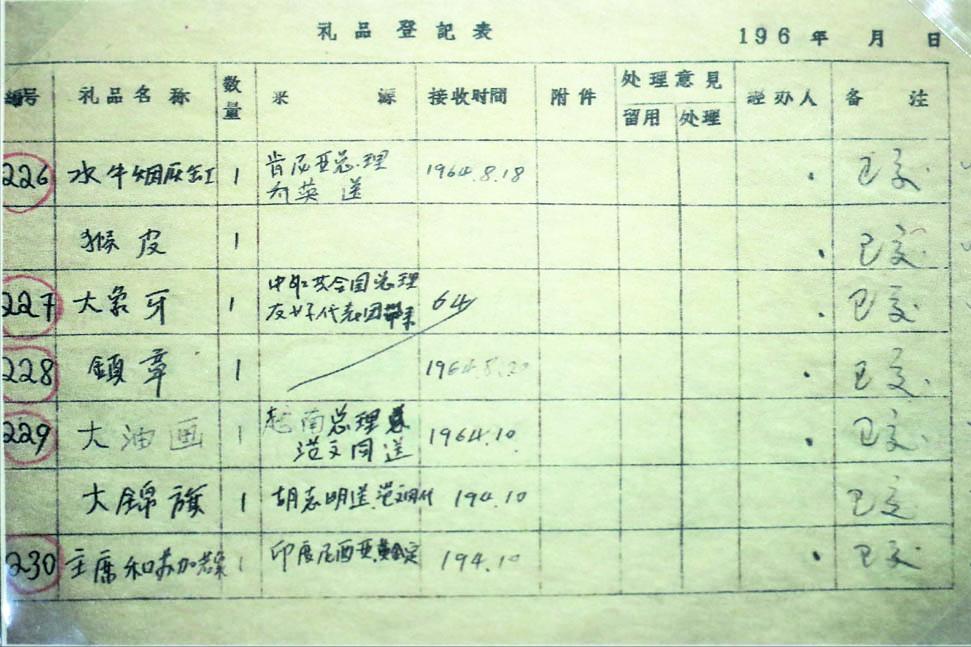 礼品登記表
196 年 月 日
編号 礼品名称 数量 来源 接收时間 附件 处理意見 留用 处理 经办人 备注
226 水牛烟灰缸 1 肯尼亚总理 1964.8.18 已交
送
猴皮 1 已交
227 大象牙 1 总理 64 已交
友好代表团
228 章 1 1964.8.20 已交
229 大油画 1 越南总理 1964.10 已交
范文同送
大錦旗 1 胡志明送.范文同代 194.10 已交
230 主席和苏加 1 印度尼西亚 194.10 已交